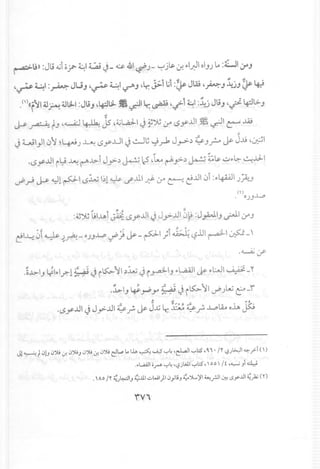 ومن السنة: ما رواه البراء بن عازب -رضي الله عنه- في قصة ابنة حمزة أنه قال: «فاختصم
فيها علي وزيد وجعفر، فقال علي: أنا أحق بها، وهي ابنة عمي، وقال جعفر: ابنة عمي،
وخالتها تحتي، وقال زيد: ابنة أخي، فقضى بها النبي ﷺ لخالتها، وقال: الخالة بمنزلة الأم»(١).
فقد سمع النبي ﷺ الدعوى من ثلاثة في الحضانة، كل يطلبها لنفسه، ولم يقتصر على
اثنين، فدل على مشروعية دخول طرف ثالث في الدعوى بعد رفعها؛ لأن الواقعة في
الحديث جاءت عامة تشمل دخولهم معاً، كما تشمل دخول أحدهم بعد قيام الدعوى.
ويقرر الفقهاء: أن الدعوى تسمع من غير المدعى عليه إذا تعدى الحكم إليه على فرض
صدوره(٢).
ومن المعنى والمعقول: فإن الدخول في الدعوى يحقق أهدافاً ثلاثة:
١- تمكين الخصم الذي يلحقه أثر الحكم -على فرض صدوره- بضرر عليه أن يدافع
عن نفسه.
٢- تخفيف العناء على القضاء والخصوم في تعدد الأحكام في قضية إجراءاتها واحدة.
٣- منع تعارض الأحكام في قضية موضوعها واحد.
فكل هذه مقاصد شرعية معتد بها تدل على شرعية الدخول في الدعوى.
(١) أخرجه البخاري ٩٦٠/٢، كتاب الصلح، باب كيف يكتب هذا ما صالح فلان بن فلان وفلان بن فلان وإن لم ينسبه إلى
قبيلته أو نسبه، ١٥٥١/٤، كتاب المغازي، باب عمرة القضاء.
(٢) نظرية الدعوى بين الشريعة الإسلامية وقانون المرافعات المدنية والتجارية ١٥٥/٢.
٣٧٦